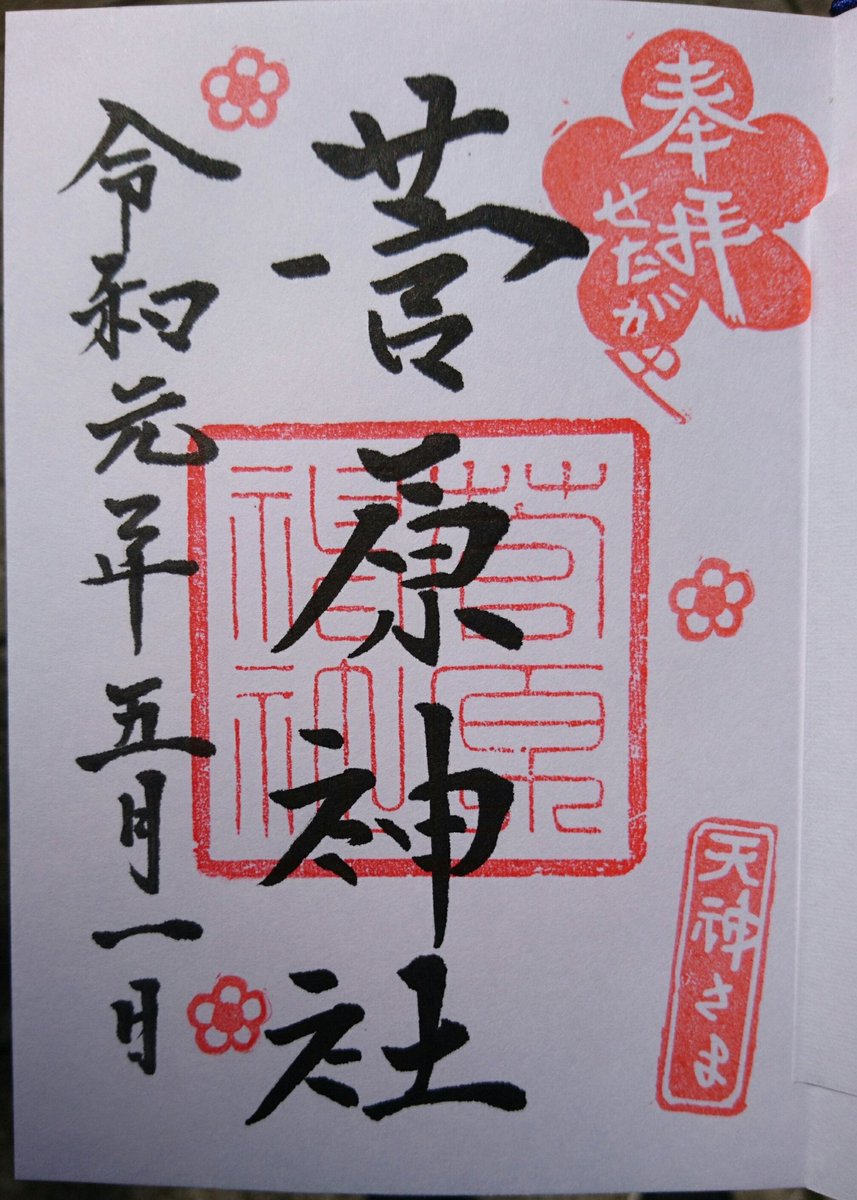 奉拝
せたがや
天神さま
菅原神社
菅原
神社
令和元年五月一日